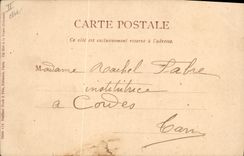 CARTE POSTALE
Ce côté est exclusivement réservé à l'adresse.
Madame Rachel Fabre
institutrice
à Cordes
Tarn